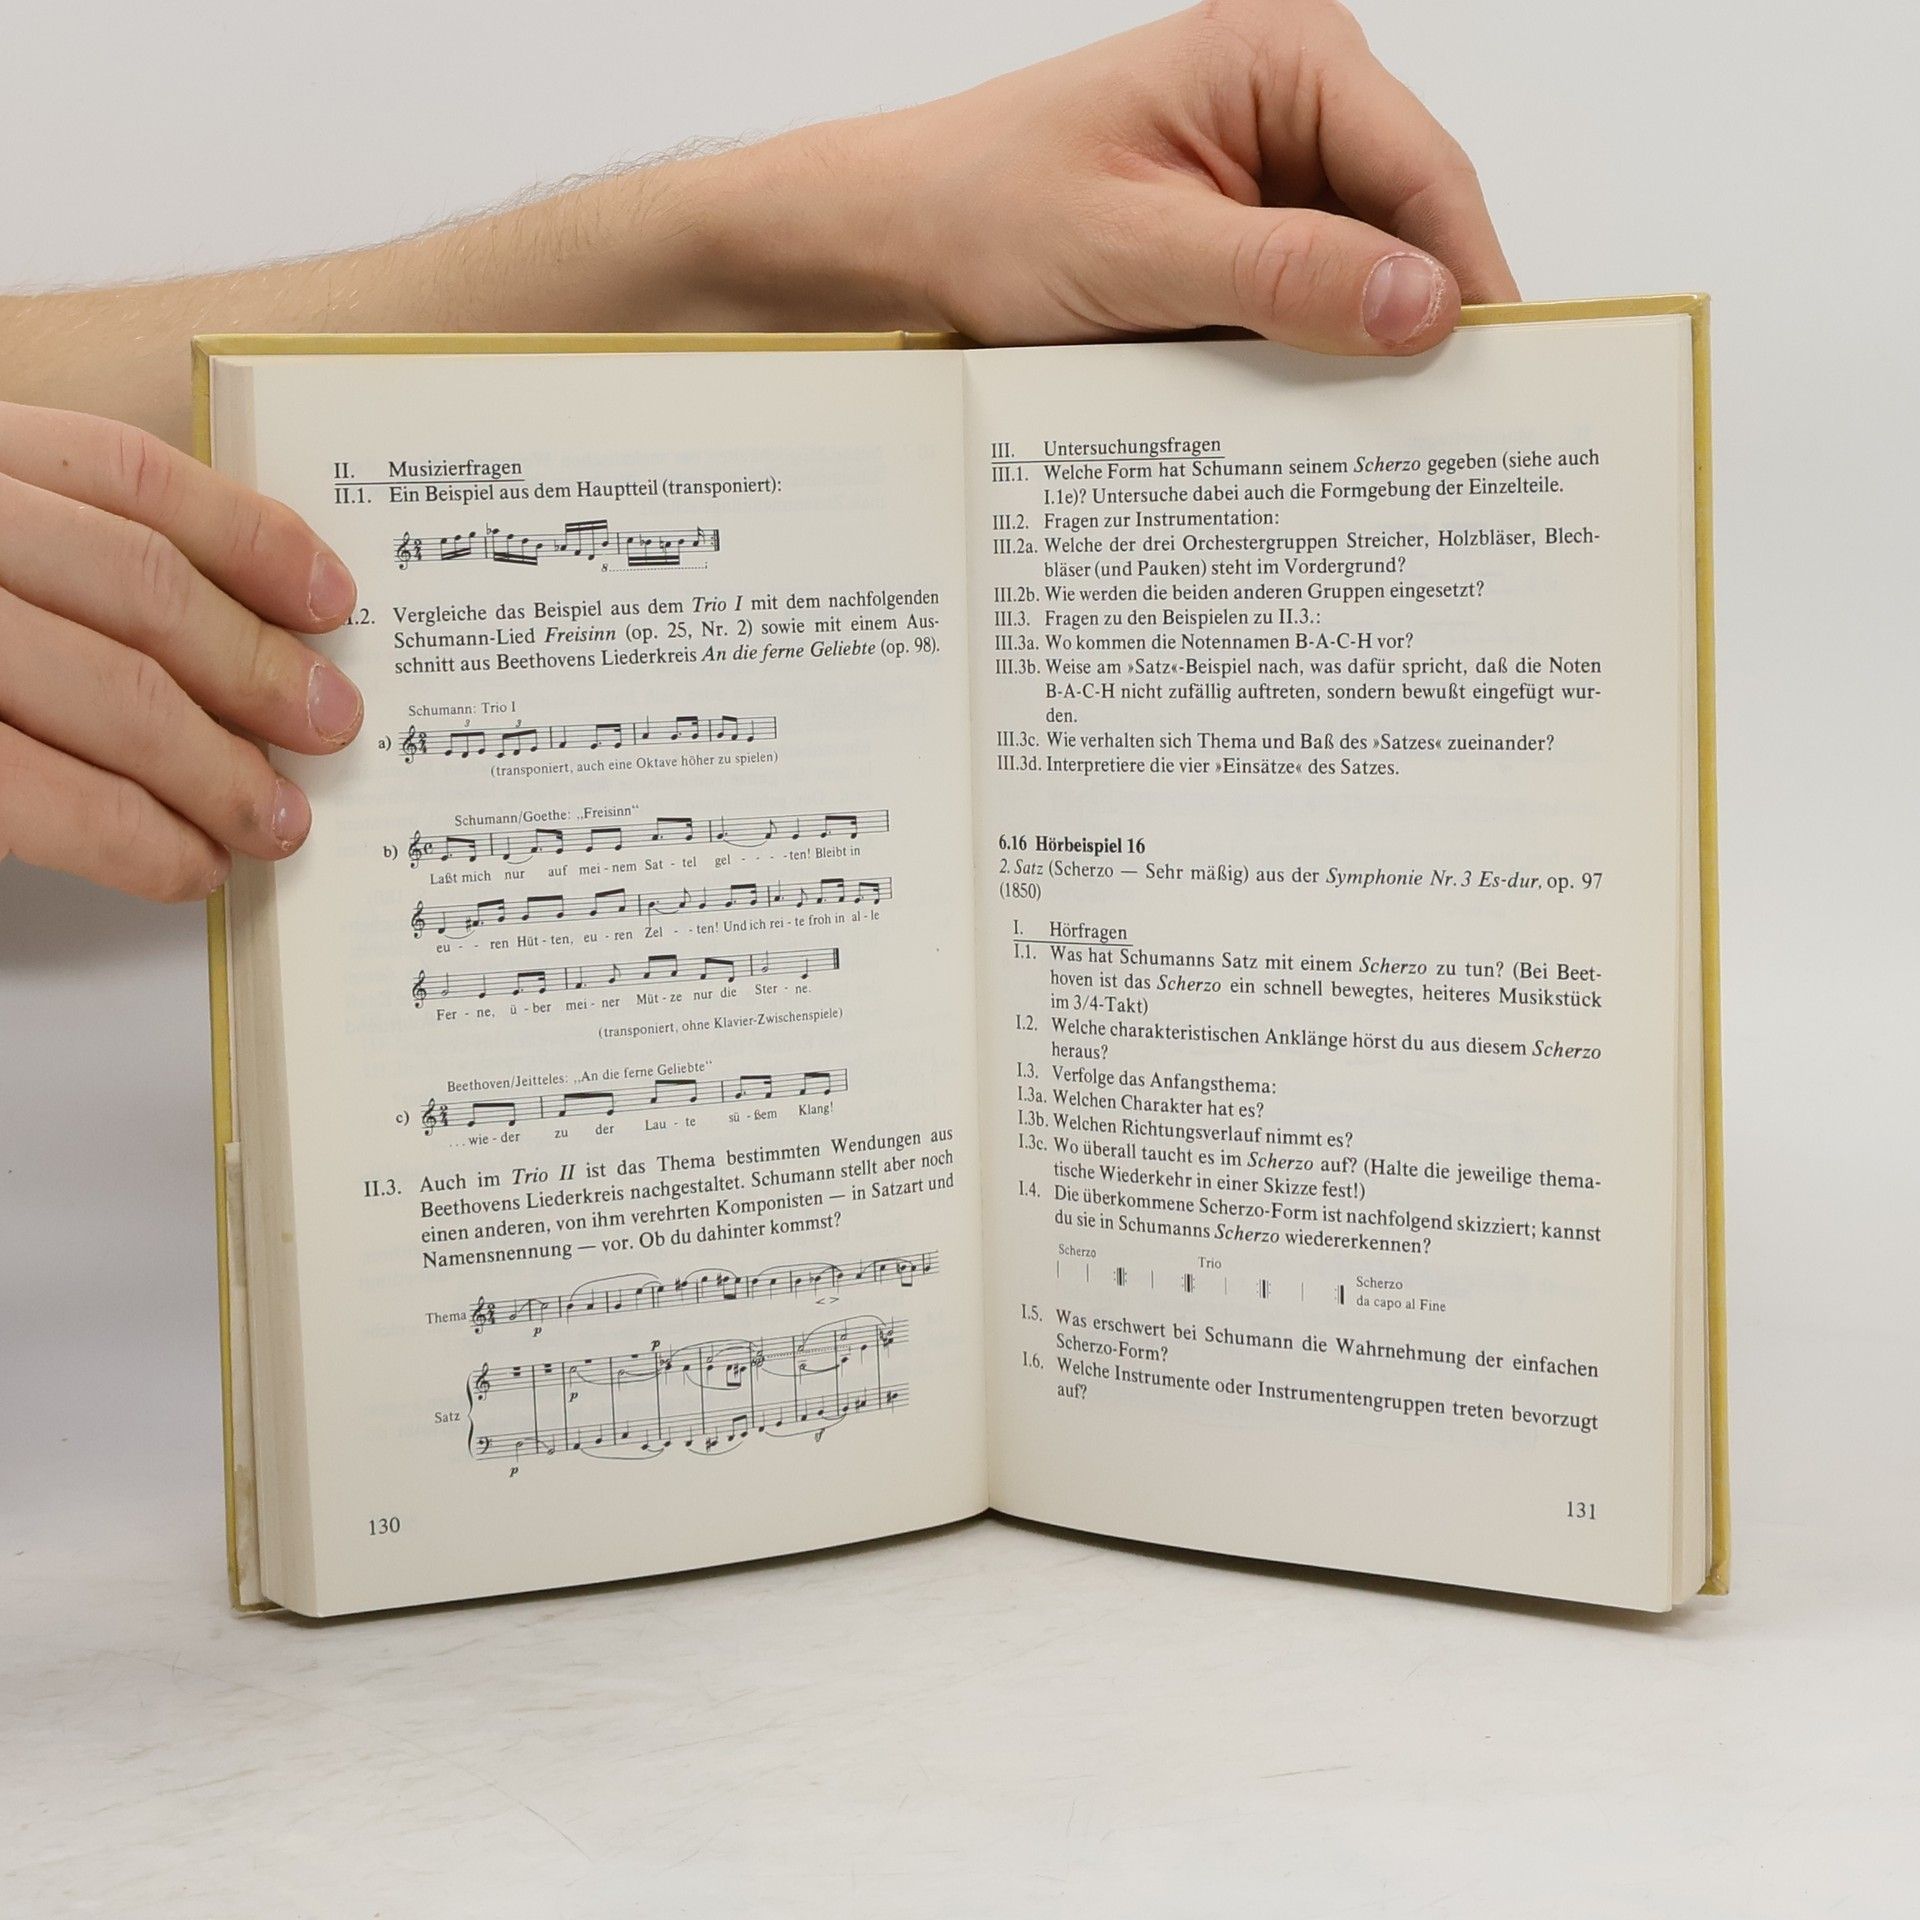 II. Musizierfragen
II.1. Ein Beispiel aus dem Hauptteil (transponiert):
8
.2. Vergleiche das Beispiel aus dem Trio I mit dem nachfolgenden
Schumann-Lied Freisinn (op. 25, Nr. 2) sowie mit einem Aus-
schnitt aus Beethovens Liederkreis An die ferne Geliebte (op. 98).
Schumann: Trio I
3 3
a)
(transponiert, auch eine Oktave höher zu spielen)
Schumann/Goethe: „Freisinn“
b)
Laßt mich nur auf mei - nem Sat - tel gel - - - - ten! Bleibt in
eu - - ren Hüt - ten, eu - ren Zel - - ten! Und ich rei - te froh in al - le
Fer - ne, ü - ber mei - ner Müt - ze nur die Ster - ne.
(transponiert, ohne Klavier-Zwischenspiele)
Beethoven/Jeitteles: „An die ferne Geliebte“
c)
... wie - der zu der Lau - te sü - ßem Klang!
II.3. Auch im Trio II ist das Thema bestimmten Wendungen aus
Beethovens Liederkreis nachgestaltet. Schumann stellt aber noch
einen anderen, von ihm verehrten Komponisten — in Satzart und
Namensnennung — vor. Ob du dahinter kommst?
Thema
p
< >
p
p
Satz
sf
p
130
III. Untersuchungsfragen
III.1. Welche Form hat Schumann seinem Scherzo gegeben (siehe auch
I.1e)? Untersuche dabei auch die Formgebung der Einzelteile.
III.2. Fragen zur Instrumentation:
III.2a. Welche der drei Orchestergruppen Streicher, Holzbläser, Blech-
bläser (und Pauken) steht im Vordergrund?
III.2b. Wie werden die beiden anderen Gruppen eingesetzt?
III.3. Fragen zu den Beispielen zu II.3.:
III.3a. Wo kommen die Notennamen B-A-C-H vor?
III.3b. Weise am »Satz«-Beispiel nach, was dafür spricht, daß die Noten
B-A-C-H nicht zufällig auftreten, sondern bewußt eingefügt wur-
den.
III.3c. Wie verhalten sich Thema und Baß des »Satzes« zueinander?
III.3d. Interpretiere die vier »Einsätze« des Satzes.
6.16 Hörbeispiel 16
2. Satz (Scherzo — Sehr mäßig) aus der Symphonie Nr. 3 Es-dur, op. 97
(1850)
I. Hörfragen
I.1. Was hat Schumanns Satz mit einem Scherzo zu tun? (Bei Beet-
hoven ist das Scherzo ein schnell bewegtes, heiteres Musikstück
im 3/4-Takt)
I.2. Welche charakteristischen Anklänge hörst du aus diesem Scherzo
heraus?
I.3. Verfolge das Anfangsthema:
I.3a. Welchen Charakter hat es?
I.3b. Welchen Richtungsverlauf nimmt es?
I.3c. Wo überall taucht es im Scherzo auf? (Halte die jeweilige thema-
tische Wiederkehr in einer Skizze fest!)
I.4. Die überkommene Scherzo-Form ist nachfolgend skizziert; kannst
du sie in Schumanns Scherzo wiedererkennen?
Scherzo Trio Scherzo
da capo al Fine
I.5. Was erschwert bei Schumann die Wahrnehmung der einfachen
Scherzo-Form?
I.6. Welche Instrumente oder Instrumentengruppen treten bevorzugt
auf?
131